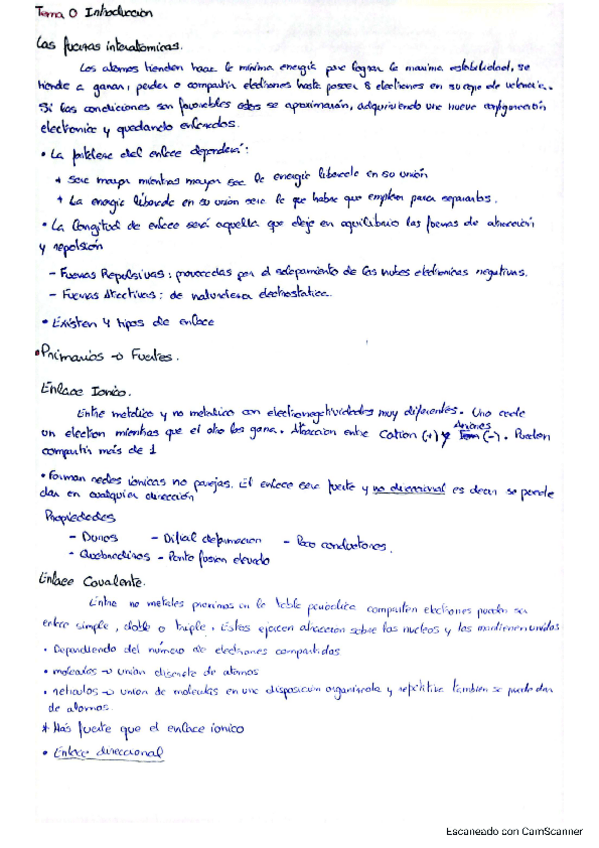 Tema 0 Introducción
Las fuerzas interatomicas.
Los atomos tienden hacia la mínima energía para lograr la maxima estabilidad, se
tiende a ganar, perder o compartir electrones hasta poseer 8 electrones en su capa de valencia.
Si las condiciones son favorables estos se aproximarán, adquiriendo una nueva configuración
electronica y quedando enlazados.
• La fortaleza del enlace dependerá:
* Sera mayor mientras mayor sea la energia liberada en su unión
* La energia liberada en su union sera la que habra que emplear para separarlos.
• La longitud de enlace será aquella que deje en equilibrio las fuerzas de atracción
y repulsión
- Fuerzas Repulsivas: provocadas por el solapamiento de las nubes electronicas negativas.
- Fuerzas Atractivas: de naturaleza electrostatica.
• Existen 4 tipos de enlace
• Primarios → Fuertes.
Enlace Ionico.
Entre metalico y no metalico con electronegatividades muy diferentes. Uno cede
un electron mientras que el otro los gana. Atraccion entre Cation (+) y Aniones (-). Pueden
compartir más de 1
• Forman redes ionicas no parejas. El enlace sera fuerte y no direccional es decir se puede
dar en cualquier dirección
Propiedades
- Duros - Dificil deformacion - Poco conductores.
- Quebradizos - Punto fusion elevado
Enlace Covalente.
Entre no metales proximos en la tabla periodica comparten electrones pueden ser
entre simple, doble o triple. Estos ejercen atraccion sobre los nucleos y los mantienen unidos
• Dependiendo del número de electrones compartidos
• moleculas → union discreta de atomos
• reticulos → union de moleculas en una disposición organizada y repetitiva tambien se puede dar
de atomos.
* Más fuerte que el enlace ionico
• Enlace direccional
Escaneado con CamScanner